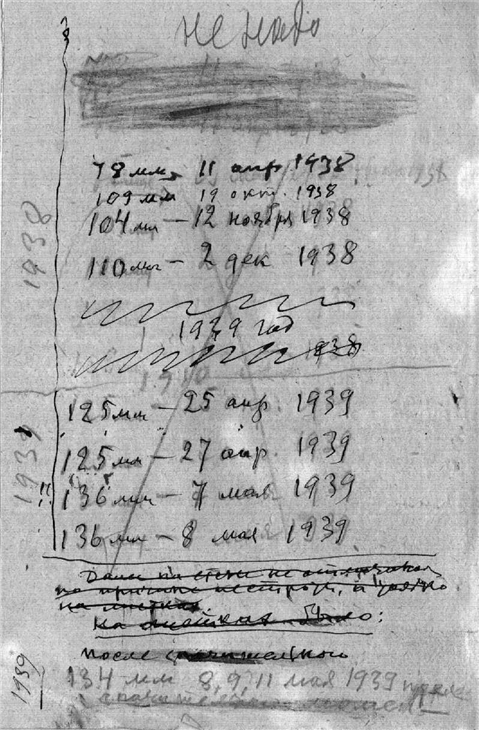 не надо
78 мм, 11 апр. 1938
109 мм 19 окт. 1938
104 мм — 12 ноября 1938
110 мм — 2 дек 1938
1938
1939 год
1938
125 мм — 25 апр. 1939
125 мм — 27 апр. 1939
!! 136 мм — 7 мая 1939
136 мм — 8 мая 1939
1939
на стене не
по причине и только
на листках.
На листках было:
после
134 мм 8, 9, 11 мая 1939 после
1939